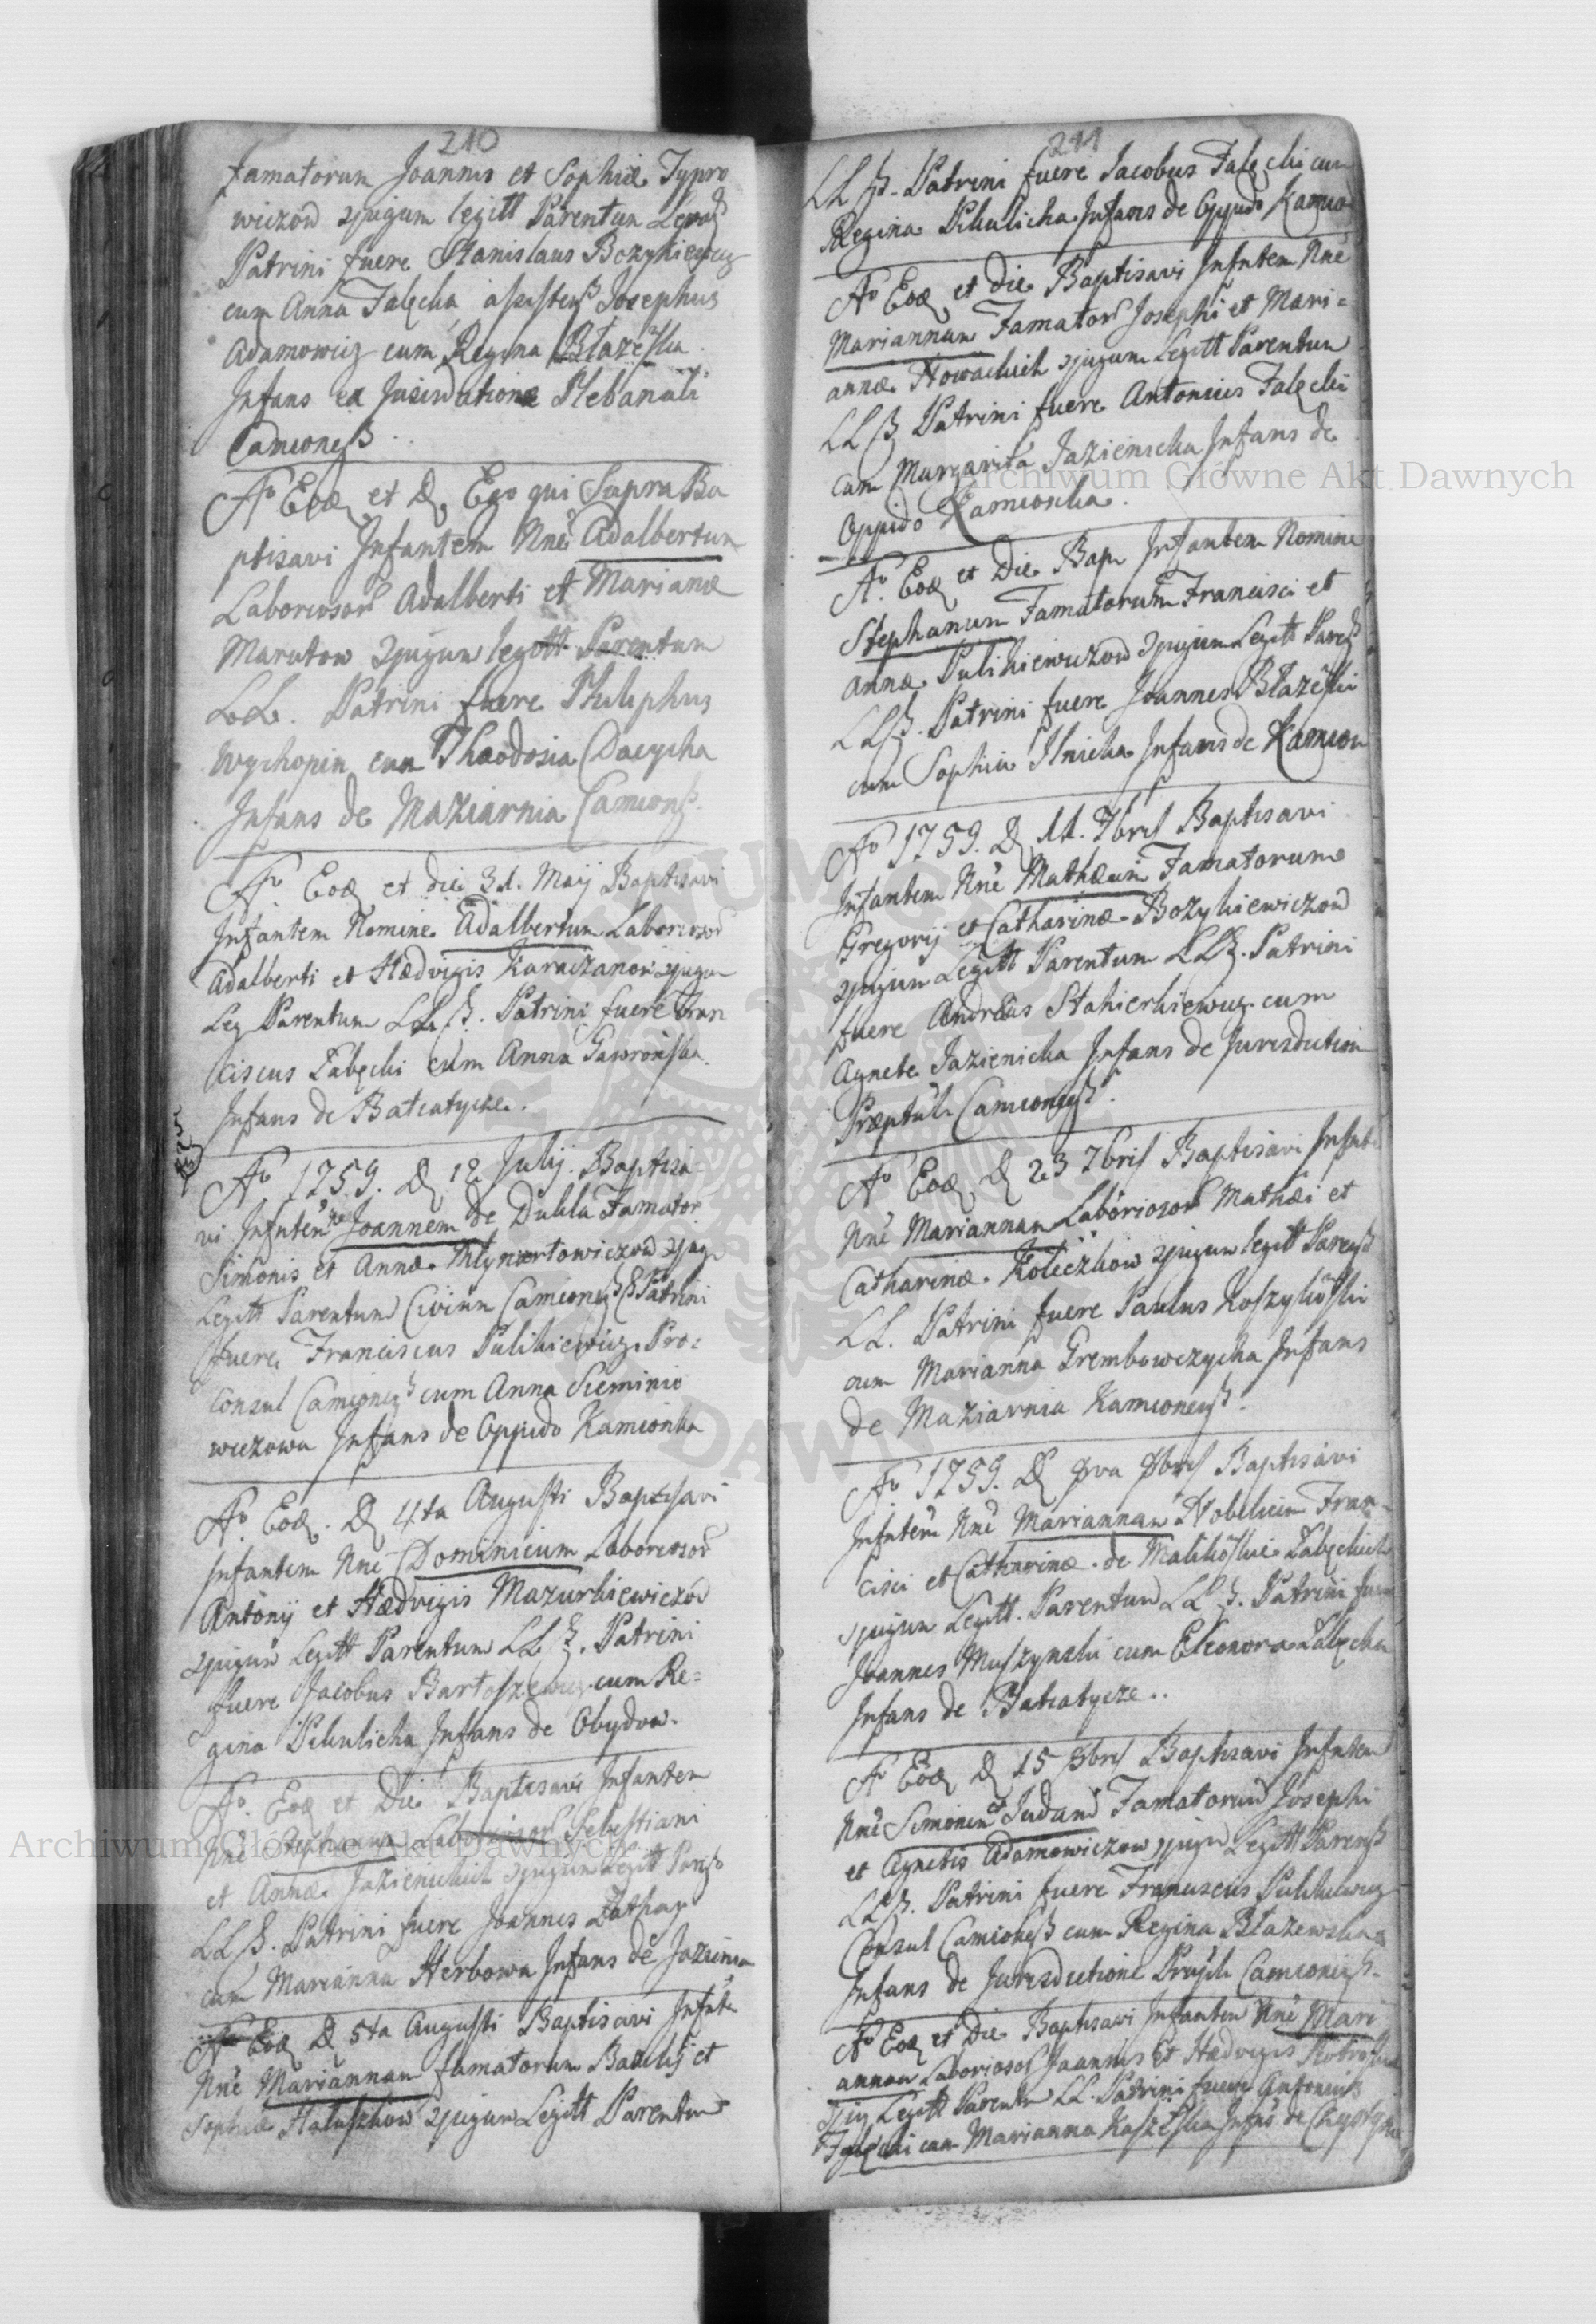 210
Famatorum Joannis et Sophiæ Typro
wiczow legitt Parentum
Patrini fuere Stanislaus Bozykiewicz
cum Anna Falęcka Josephus
Adamowicz cum Regina Błazeska
Infans ex Plebanali
Camionens
Aº Eod et D Ego qui Supra Ba
ptisavi Infantem Nne Adalbertum
Laboriosor Adalberti et Marianæ
Marutow legitt Parentum
L.L. Patrini fuere Philiphus
Wychopin cum Theodosia Dacycha
Infans de Maziarnia Camions
Aº Eod et die 31. Maij Baptisavi
Infantem Nomine Adalbertum Laboriosor
Adalberti et Hædvigis
Leg Parentum LL Patrini fuere Fran
ciscus Zabęcki cum Anna Gawrońska
Infans de Batiatycze.
Aº 1759. D 12 Julij. Baptisa
vi Infntem Joannem de Dukla Famator
Simonis et Annæ Młynartowiczow
Legitt Parentum Civium Camionens Patrini
fuere Franciscus Pulikiewicz Pro=
consul Camionens cum Anna Sieminio
wiczowa Infans de Oppido Kamionka
Aº Eod. D 4ta Augusti Baptisavi
Infantem Nne Dominicum Laboriosor
Antonij et Hædvigis Mazurkiewiczow
Legitt Parentum LL Patrini
fuere Jacobus Bartoszewicz cum Re=
gina Pikulicka Infans de Obydow.
Aº. Eod et Die Baptisavi Infantem
Nne Stephanum Laboriosor Sebastiani
et Annæ Jazienickich Legitt
LL Patrini fuere Joannes
cum Marianna Herbowa Infans de
Aº Eod D 5ta Augusti Baptisavi Infnte
Nne Mariannam famatorum Bazilij et
Sophiæ Legitt Parentum
211
LL Patrini fuere Jacobus Falęcki cum
Regina Pikulicka Infans de Oppido Kamion
Aº Eod et Die Baptisavi Infntem Nne
Mariannam Famator Josephi et Mari=
annæ Nowackich Legitt Parentum
LL Patrini fuere Antonius Falęcki
cum Margarita Jazienicka Infans de
Oppido Kamionka.
Aº. Eod et Die Bap Infantem Nomine
Stephanum Famatorum Francisci et
Annæ Pulikiewiczow Legitt
LL Patrini fuere Joannes Błazeski
cum Sophia Ilnicka Infans de Kamion
Aº 1759. D 11. 7bris Baptisavi
Infantem Nne Mathæum Famatorum
Gregorij et Catharinæ Bozykiewiczow
Legitt Parentum LL Patrini
fuere Andreas Stahierkiewicz cum
Agnete Jazienicka Infans de Jurisdiction
Camionens.
Aº Eod D 23 7bris Baptisavi Infnt
Nne Mariannam Laboriosor Mathæi et
Catharinæ legitt
LL. Patrini fuere Paulus
cum Marianna Grembowczycha Infans
de Maziarnia Kamionens.
Aº 1759. D 8bris Baptisavi
Infntem Nne Mariannam Nobilium Fran=
cisci et Catharinæ de Zabęckich
Legitt. Parentum LL Patrini fuere
Joannes Muszynski cum Eleonora Zabęcka
Infans de Batiatycze..
Aº Eod D 15 8bris Baptisavi Infntem
Nne Simonem et Judam Famatorum Josephi
et Agnetis Adamowiczow Legitt
LL Patrini fuere Franciscus
Consul Camionens cum Regina Błazewska
Infans de Jurisdictione Camioniens
Aº Eod et Die Baptisavi Infantem Nne Mari
annam Laboriosor Joannis et Hædvigis
Legitt Parentm LL Patrini fuere Antonius
Falęcki cum Marianna Infns de
Archiwum Główne Akt Dawnych
Archiwum Główne Akt Dawnych
Archiwum Główne Akt Dawnych